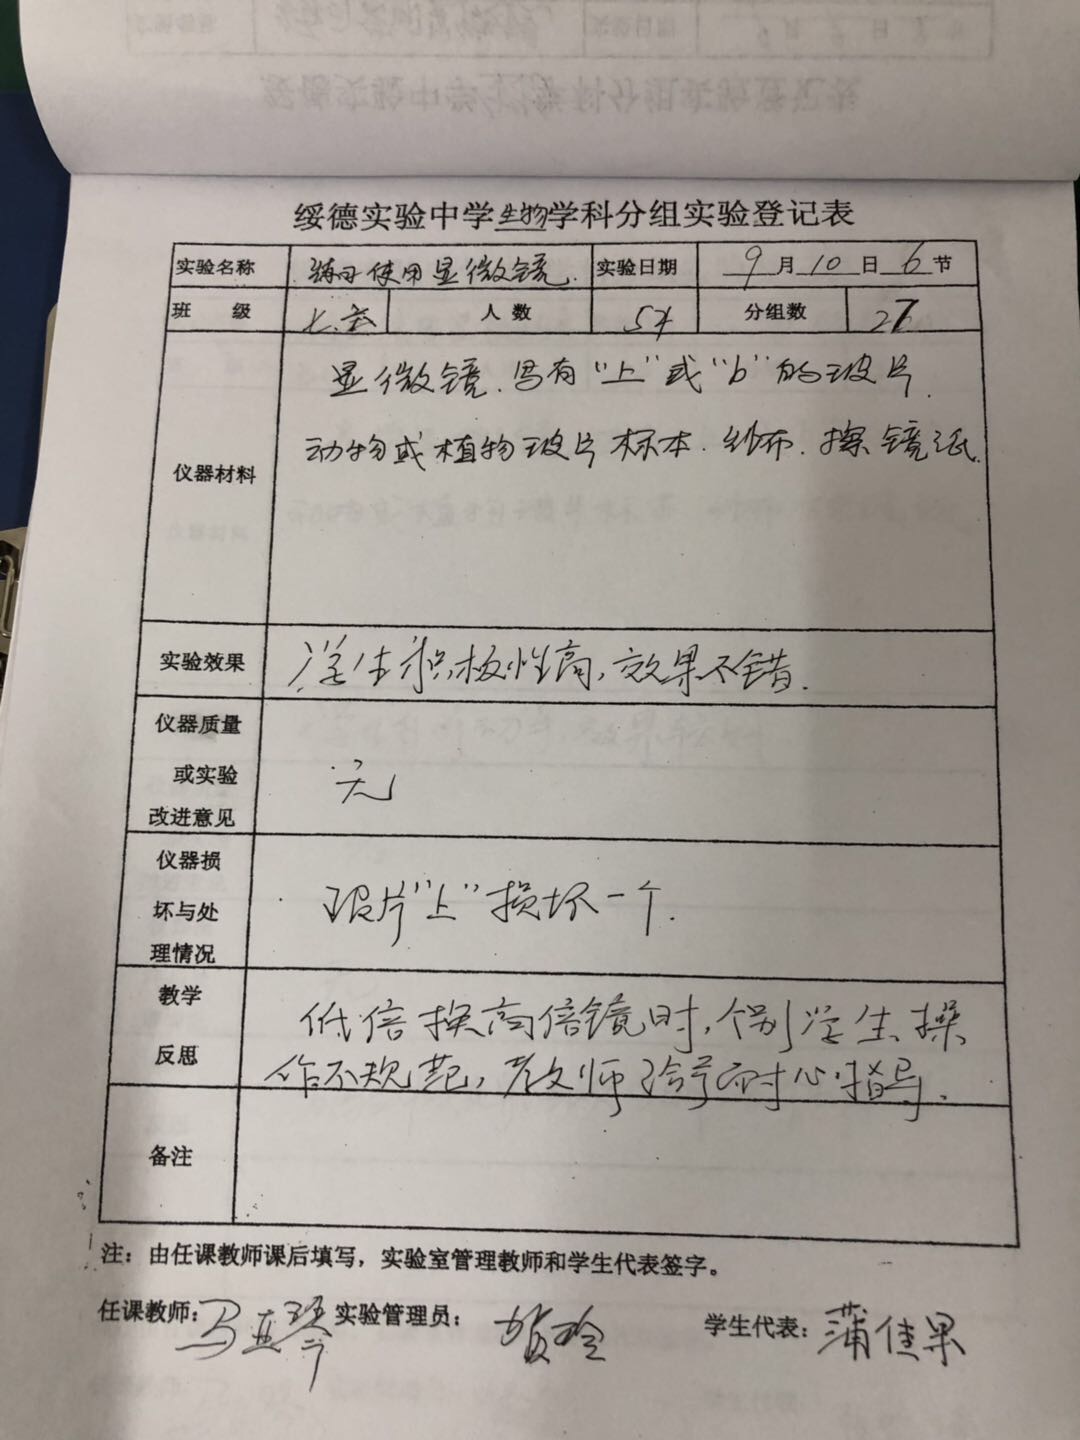 绥德实验中学生物学科分组实验登记表
实验名称 练习使用显微镜. 实验日期 9月10日6节
班级 七. 人数 54 分组数 27
仪器材料 显微镜.写有"上"或"b"的玻片.
动物或植物玻片标本.纱布.擦镜纸.
实验效果 学生积极性高,效果不错.
仪器质量
或实验 无
改进意见
仪器损
坏与处 玻片"上"损坏一个.
理情况
教学 低倍换高倍镜时,个别学生操
反思 作不规范,教师给予耐心指导.
备注
注：由任课教师课后填写，实验室管理教师和学生代表签字。
任课教师：马亚琴 实验管理员： 学生代表：蒲佳果